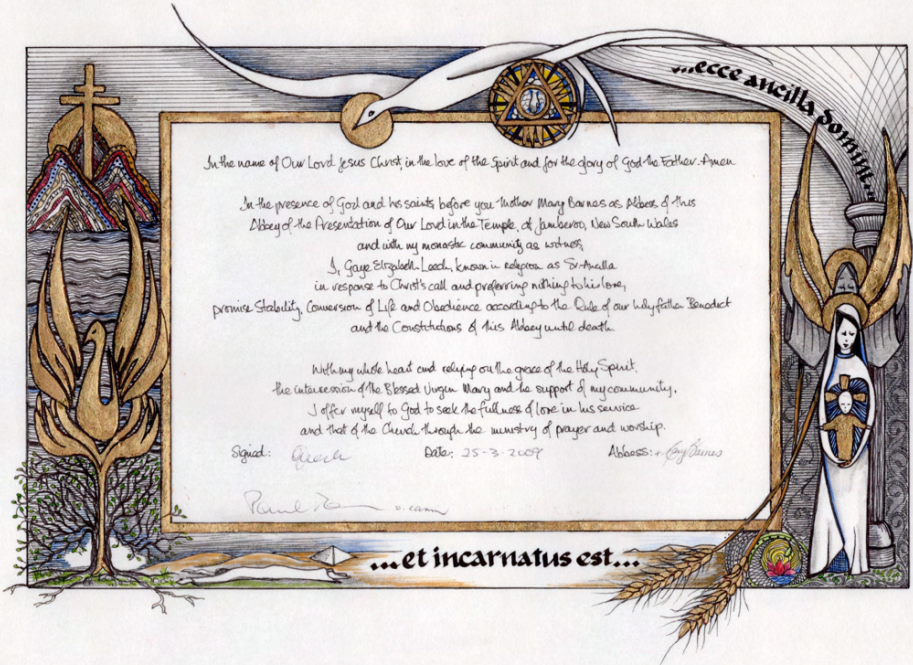 ...ecce ancilla Domini...
In the name of Our Lord Jesus Christ, in the love of the Spirit and for the glory of God the Father. Amen
In the presence of God and his saints, before you Mother Mary Barnes as Abbess of this
Abbey of the Presentation of Our Lord in the Temple, at Jamberoo, New South Wales
and with my monastic community as witness,
I, Gaye Elizabeth Leech, known in religion as Sr. Ancilla
in response to Christ's call and preferring nothing to his love,
promise Stability, Conversion of Life and Obedience according to the Rule of our holy father Benedict
and the Constitutions of this Abbey until death.
With my whole heart and relying on the grace of the Holy Spirit,
the intercession of the Blessed Virgin Mary and the support of my community,
I offer myself to God to seek the fullness of love in his service
and that of the Church through the ministry of prayer and worship.
Signed: Date: 25-3-2009 Abbess: + Mary Barnes
...et incarnatus est...